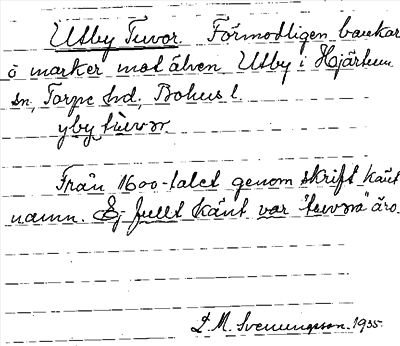 Utby Tuvor. Förmodligen bankar
o marker mot älven Utby i Hjärtum
sn, Torpe hd, Bohus l.
yby tuvor
Från 1600-talet genom skrift känt
namn. Ej fullt känt var "tuvora" äro.
D. M. Svenungsson. 1935.